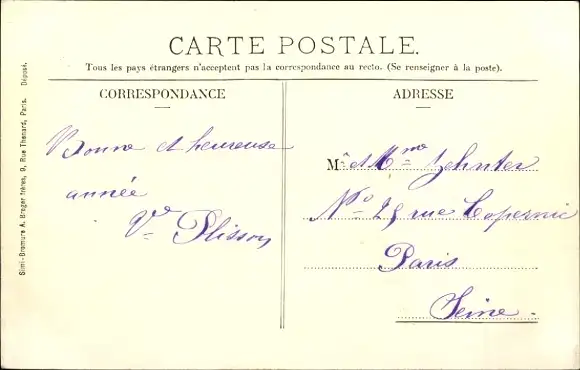 CARTE POSTALE.
Tous les pays étrangers n'acceptent pas la correspondance au recto. (Se renseigner à la poste).
CORRESPONDANCE
Bonne et heureuse
année
Vᵉ Plisson
ADRESSE
Mʳ et Mᵐᵉ Zehnter
Nº 25 rue Copernic
Paris
Seine.
Simi-Bromure A. Breger frères, 9, Rue Thénard, Paris. Déposé.